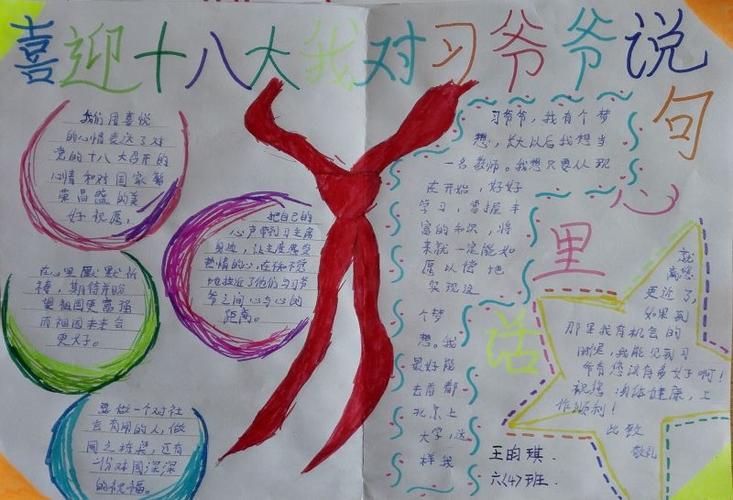 喜迎十八大我对习爷爷说句心里话
我们用喜悦
的心情表达了对
党的十八大召开的
心情和对国家繁
荣昌盛的美
好祝愿。
在心里默默祈
祷，期待并盼
望祖国更富强
而祖国未来会
更好。
要做一个对社
会有用的人，做
国之栋梁，还有
一份对国深深
的祝福。
把自己的
心声带到习主席
身边，让主席感受
热情的心，在
地拉近了他们与习爷
爷之间心与心的
距离。
习爷爷，我有个梦
想，长大以后我想当
一名教师。我想只要从现
在开始，好好
学习，掌握丰
富的知识，将
来就一定能如
愿以偿地
实现这
个梦
想。我
最好能
去首都
北京上
大学，这
样我
就
离您
更近了，
如果到
那里我有机会的
话，我能见到习
爷爷您该有多好啊！
祝您 身体健康，工
作顺利！
此致
敬礼
王昀琪.
六(4)班.